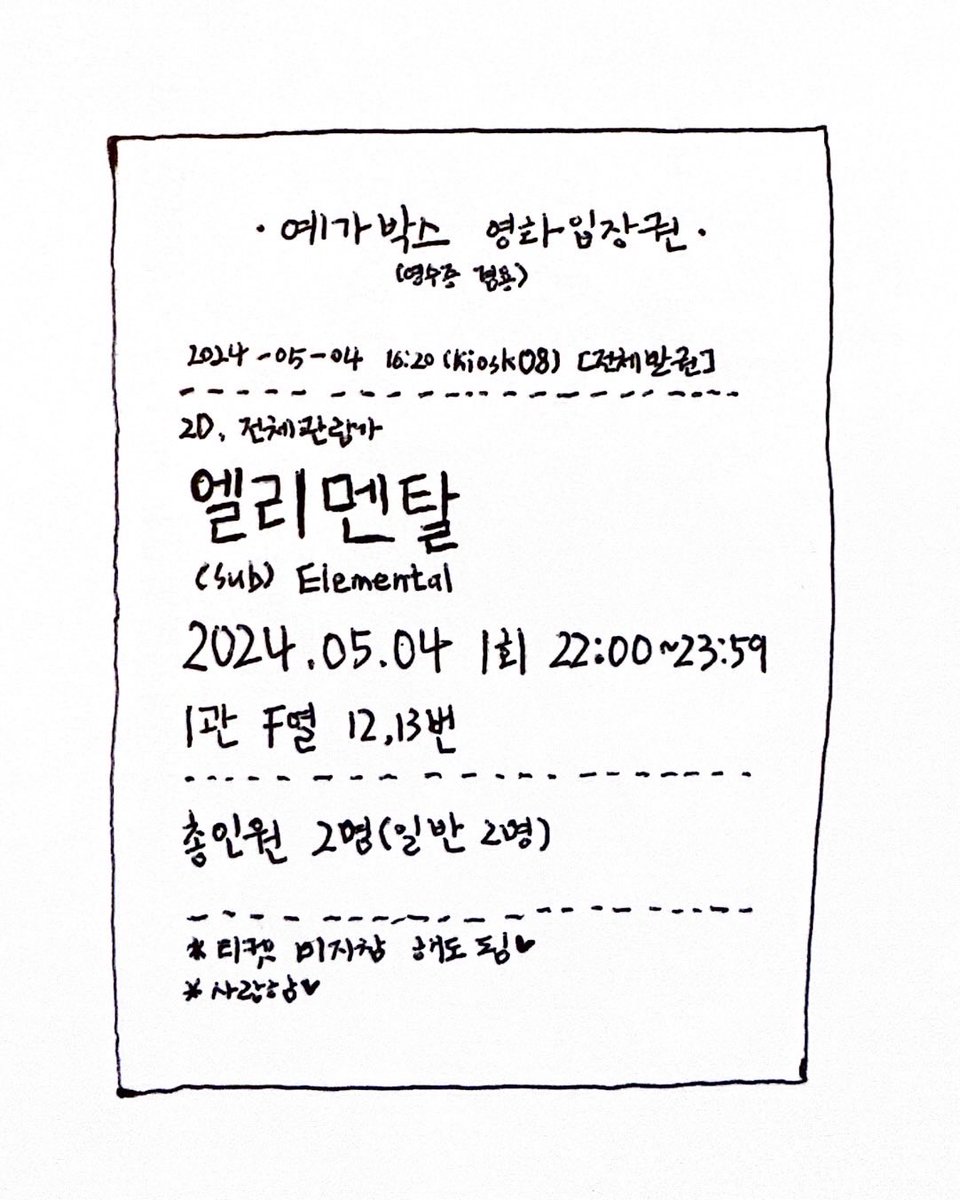 · 예가박스 영화입장권 ·
(영수증 겸용)
2024-05-04 16:20 (Kiosk08) [전체발권]
2D, 전체관람가
엘리멘탈
(Sub) Elemental
2024.05.04 1회 22:00~23:59
1관 F열 12,13번
총인원 2명(일반 2명)
*티켓 미지참 해도 됨♥
*사랑함♥